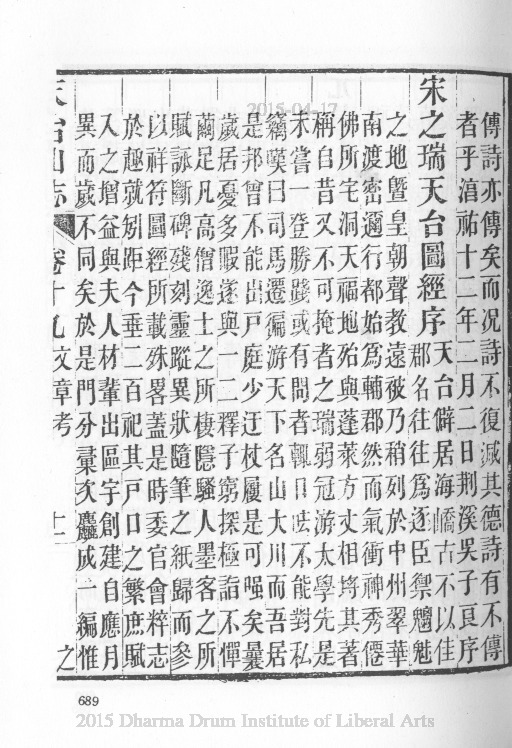 傳詩亦傳矣而况詩不復減其德詩有不傳
者乎湻祐十二年二月二日荆溪吳子良序
宋之瑞天台圖經序 天台僻居海嶠古不以佳郡名往往爲逐臣禦魑魅
之地暨皇朝聲教遠被乃稍列於中州翠華
南渡密邇行都始爲輔郡然而氣衝神秀僊
佛所宅洞天福地殆與蓬萊方丈相埓其著
稱自昔又不可掩者之瑞弱冠游太學先是
未嘗一登勝踐或有問者輒口呿不能對私
竊嘆曰司馬遷徧游天下名山大川而吾居
是邦曾不能出戶庭少迂杖屨是可强矣曩
歲居憂多暇遂與一二釋子窮探極詣不憚
繭足凡高僧逸士之所棲隱騷人墨客之所
賦詠斷碑殘刻靈蹤異狀隨筆之紙歸而參
以祥符圖經所載殊畧蓋是時委官會粹志
於趣就矧距今垂二百祀其戸口之繁庶賦
入之增益與夫人材輩出區宇創建自應月
異而歲不同矣於是門分彙次釐成一編惟
天台山志 卷十九文章考 十二 之
689
2015-04-17
2015 Dharma Drum Institute of Liberal Arts